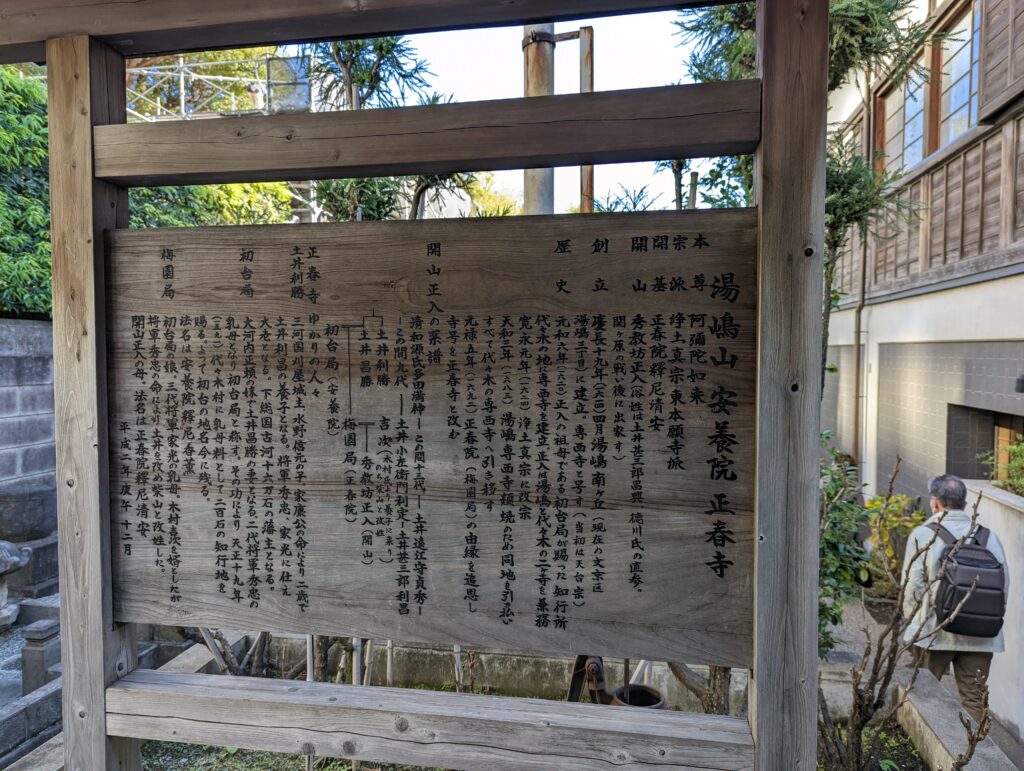 湯嶋山 安養院 正春寺
本尊 阿彌陀如来
宗派 浄土真宗東本願寺派
開基 正春院釋尼清安
開山 秀教坊正入(俗性は土井甚三郎昌興 徳川氏の直参。
関ヶ原の戦後に出家す)
創立 慶長十九年(一六一四)四月湯嶋南ヶ丘(現在の文京区
湯嶋三丁目)に建立。専西寺と号す(当初は天台宗)
歴史 元和六年(一六二〇)正入の祖母である初台局が賜った知行所
代々木の地に専西寺を建立正入は湯嶋と代々木の二ヶ寺を兼務
寛永元年(一六二四)浄土真宗に改宗
天和三年(一六八三) 湯嶋専西寺類焼のため同地を引払い
すべて代々木の専西寺へ引き移す
元禄五年(一六九二)正春院(梅園局)の由縁を追思し
寺号を正春寺と改む
開山正入の系譜
清和源氏多田満仲―この間十代―土井遠江守貞秀―
―この間九代―土井小左衛門利定―土井甚三郎利昌
土井利勝 吉次
土井昌勝 秀教坊正入(開山)
初台局(安養院) 梅園局(正春院)
正春寺 ゆかりの人々
土井利勝 三河国刈屋城主 水野信元の子 家康公の命により二歳で
土井利昌の養子になる。将軍秀忠、家光に仕え
大老となる。下総国古河十六万石の藩主となる。
初台局 大河内正頼の様子土井昌勝の妻となる。二代将軍秀忠の
乳母となり初台局と称す。その功により、天正十九年
(一五九一)代々木村に乳母料として二百石の知行地を
賜る。よって初台の地名今に残る。
法名は安養院釋尼春薫
梅園局 初台局の娘、三代将軍家光の乳母、木村吉次を婿としたが
将軍秀忠の命により土井を改め柴山と改性した。
開山正入の母。法名は正春院釋尼清安
平成二年庚午十二月